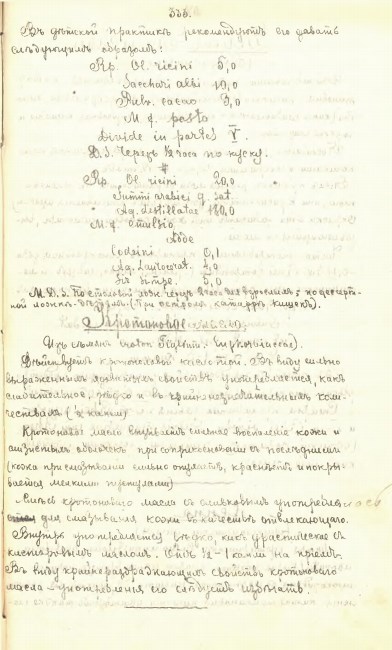 333.
Въ дѣтской практикѣ рекомендуютъ его давать
слѣдующимъ образомъ:
Rp. Ol. ricini 5,0
Sacchari albi 10,0
Pulv. cacao 3,0
M. f. pasta
Divide in partes V.
D. S. Черезъ ½ часа по куску.
#
Rp. Ol. ricini 20,0
Gummi arabici q. sat
Aq. destillatae 180,0
M. f. emulsio
Adde
Codeini 0,1
Aq. Laurocerat. 4,0
Sir. simpl. 5,0
M. D. S. По столовой ложк. черезъ 2 часа для взрослыхъ; по десерт-
ной ложкѣ (При остромъ катаррѣ кишекъ).
Кротоновое масло.
Изъ сѣмянъ
Дѣйствуетъ кротоновой кислотой. Въ виду сильно
выраженныхъ ядовитыхъ свойствъ употребляется, какъ
слабительное, рѣдко и въ крайне незначительныхъ коли-
чествахъ
Кротоновое масло вызываетъ сильное воспаленіе кожи и
слизистыхъ оболочекъ при соприкосновеніи съ послѣдними
(кожа при смазываніи сильно опухаетъ, краснѣетъ и покры-
вается мелкими пузырями)
Смѣсь кротоноваго масла съ оливковымъ употребляется
для смазыванія кожи въ качествѣ отвлекающаго.
Внутрь употребляется рѣдко, какъ драстическое съ
касторовымъ масломъ. ½-1 капли на пріемъ.
Въ виду крайне раздражающихъ свойствъ кротоноваго
масла - употребленія его слѣдуетъ избѣгать.